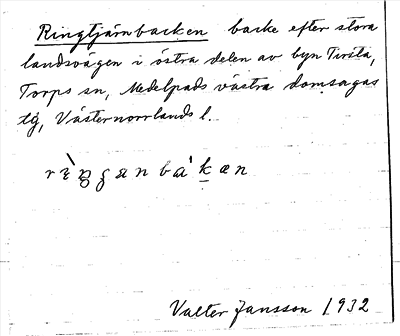 Ringtjärnbacken backe efter stora
landsvägen i östra delen av byn
Torps sn, Medelpads västra domsagas
tg, Västernorrlands l.
Valter Jansson 1932